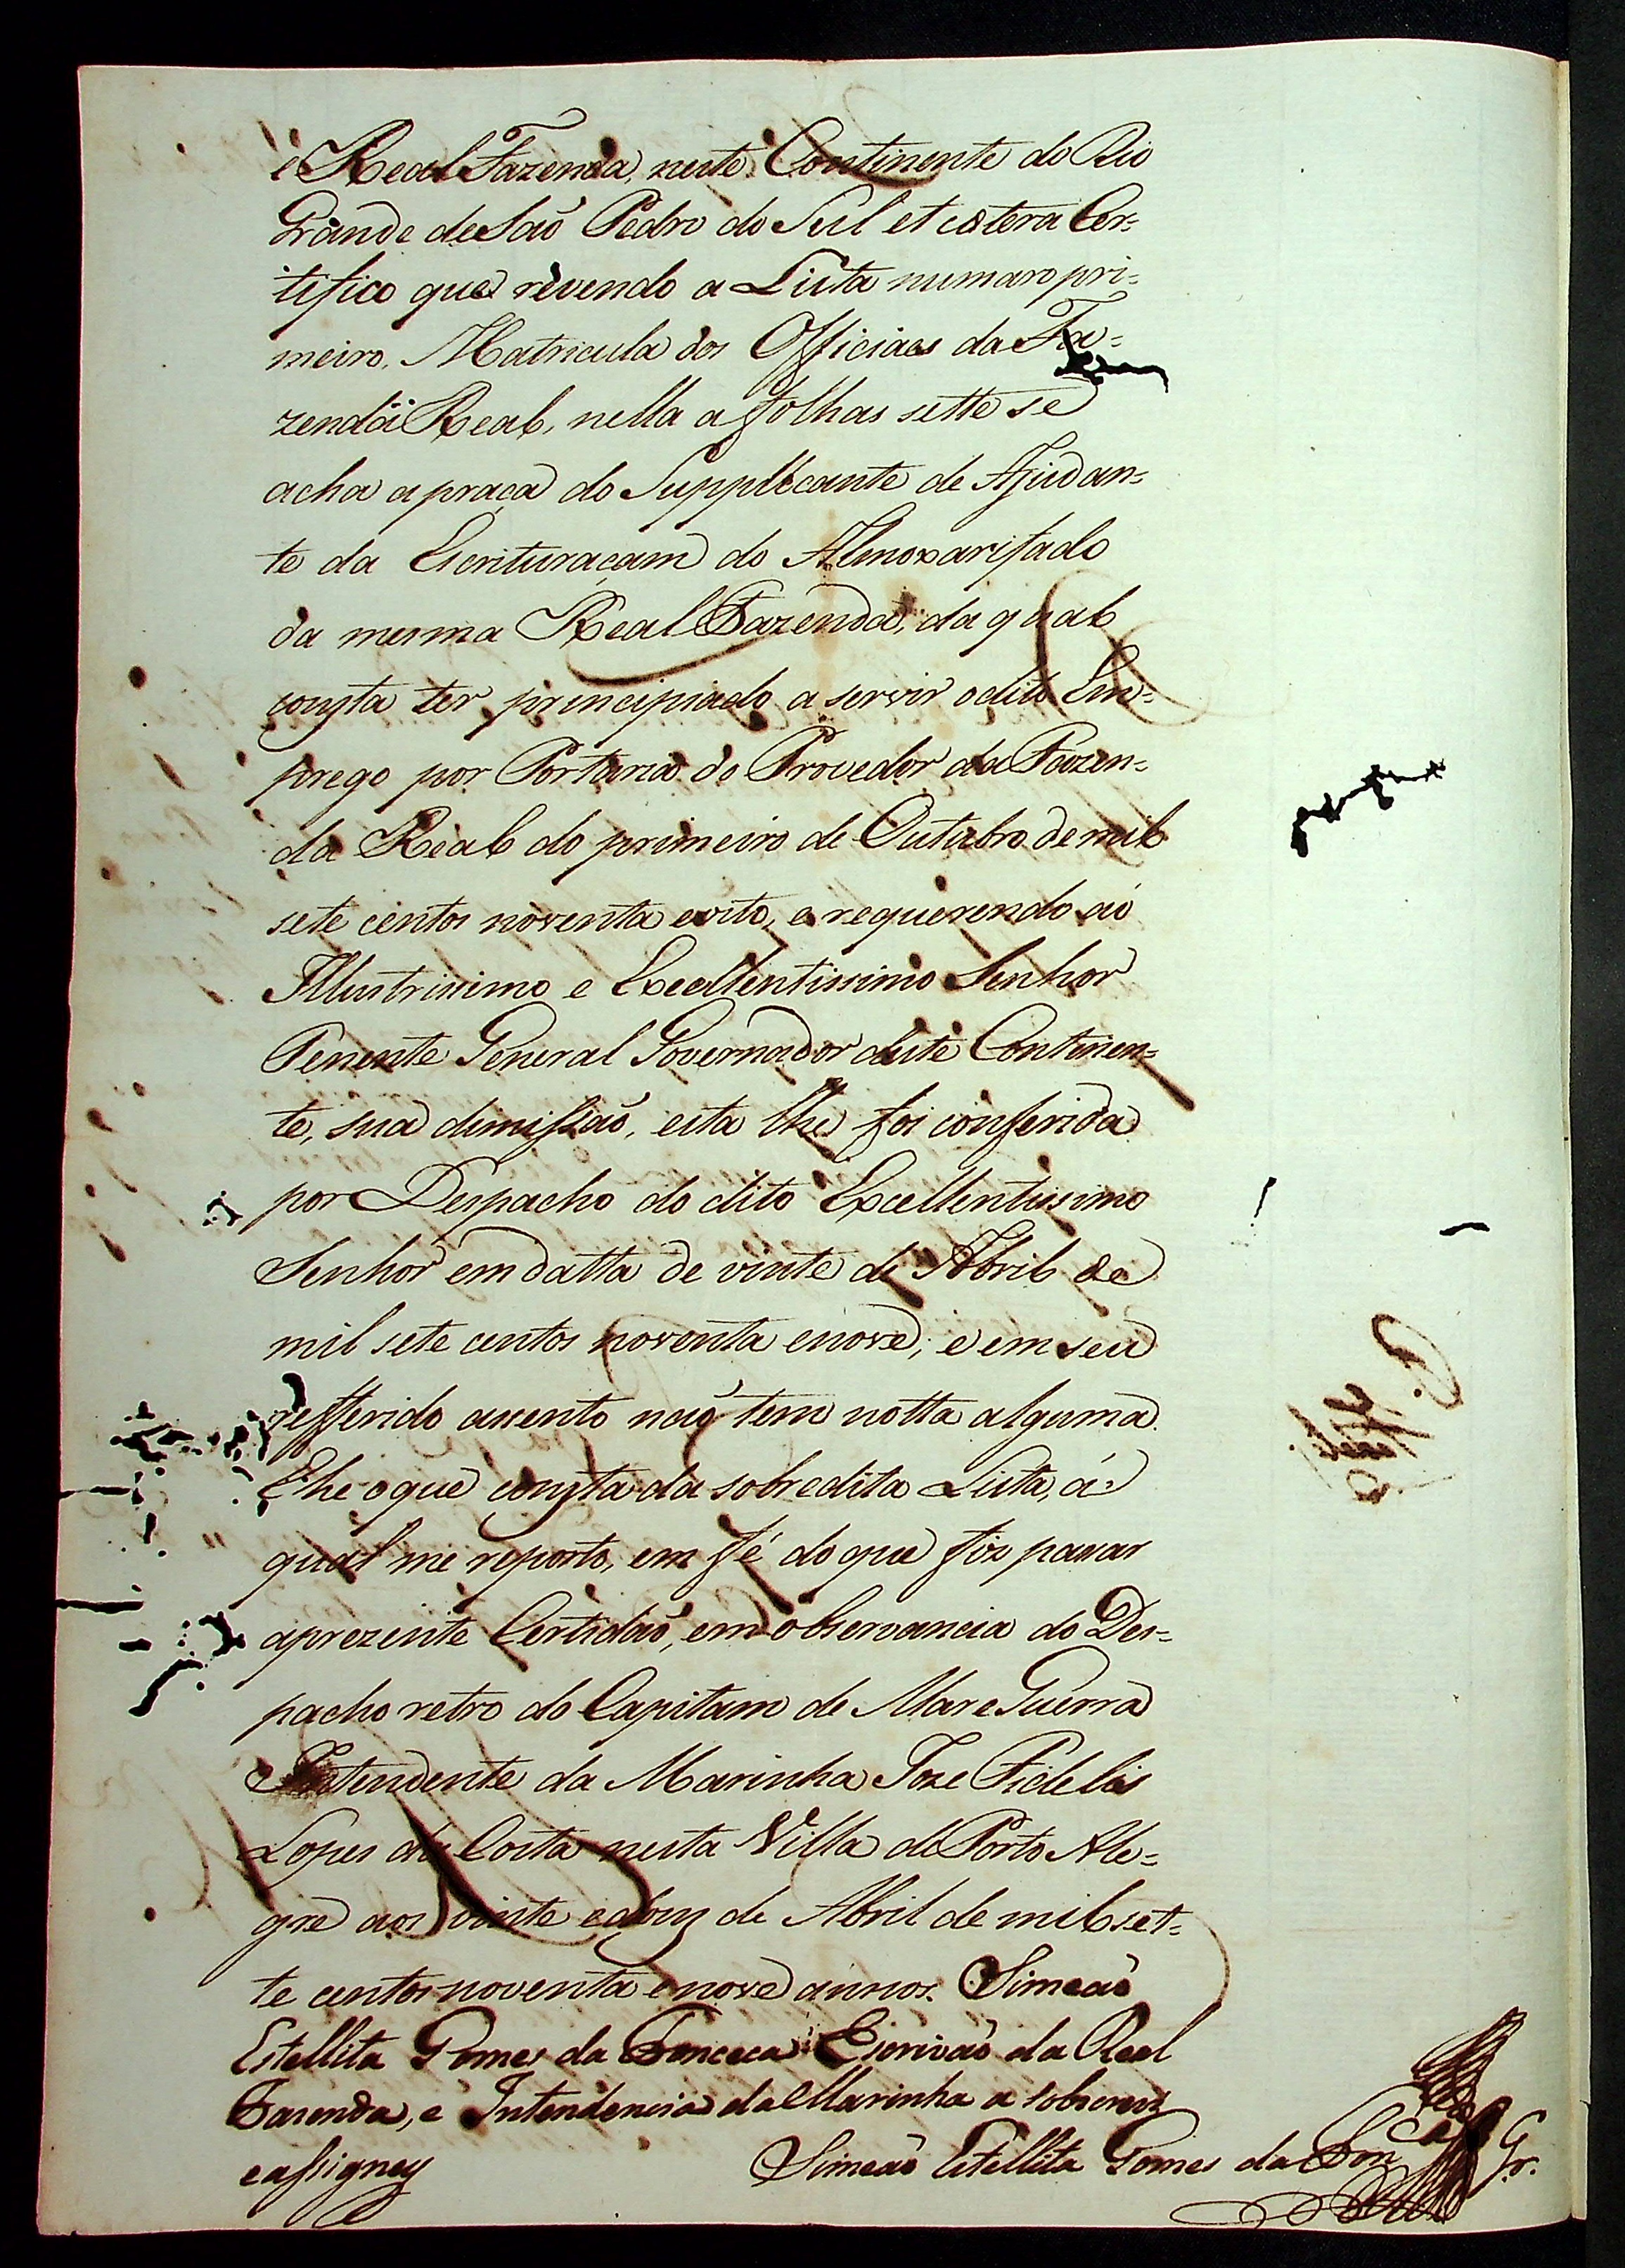 e Real Fazenda, neste Continente do Rio
Grande de Saõ Pedro do Sul et cætera Cer=
tifico que revendo a Lista numaro pri=
meiro, Matricula dos Officiaes da Fa=
zenda Real, nella a folhas sette se
acha a praça do Supplicante de Ajudan=
te da Escrituraçam do Almoxarifado
da mesma Real Fazenda, da qual
consta ter principiado a servir o dito Em=
prego por Portaria do Provedor da Fazen=
da Real do primeiro de Outubro de mil
sete centos noventa eoito, e requerendo áo
Illustrissimo e Excellentissimo Senhor
Tenente General Governador deste Continen=
te, sua dimissaõ, esta lhe foi conferida
por Despacho do dito Excellentissimo
Senhor em datta de vinte de Abril de
mil sete centos noventa enove; e em seu
refferido assento naõ tem notta alguma.
Ehe oque consta da sobredita Lista, á
qual me reporto, em fé do que fiz passar
aprezente Certidaõ, em observancia do Des=
pacho retro do Capitam de Mar e Guerra
Intendente da Marinha Joze Fidelis
Lopes da Costa nesta Villa de Porto Ale=
gre aos vinte edous de Abril de mil set=
te centos noventa enove annos. Simeaõ
Estellita Gomes da Fonceca Escrivaõ da Real
Fazenda, e Intendencia da Marinha a sobscrevy
eassigney
Simeaõ Estellita Gomes da Fon.ca